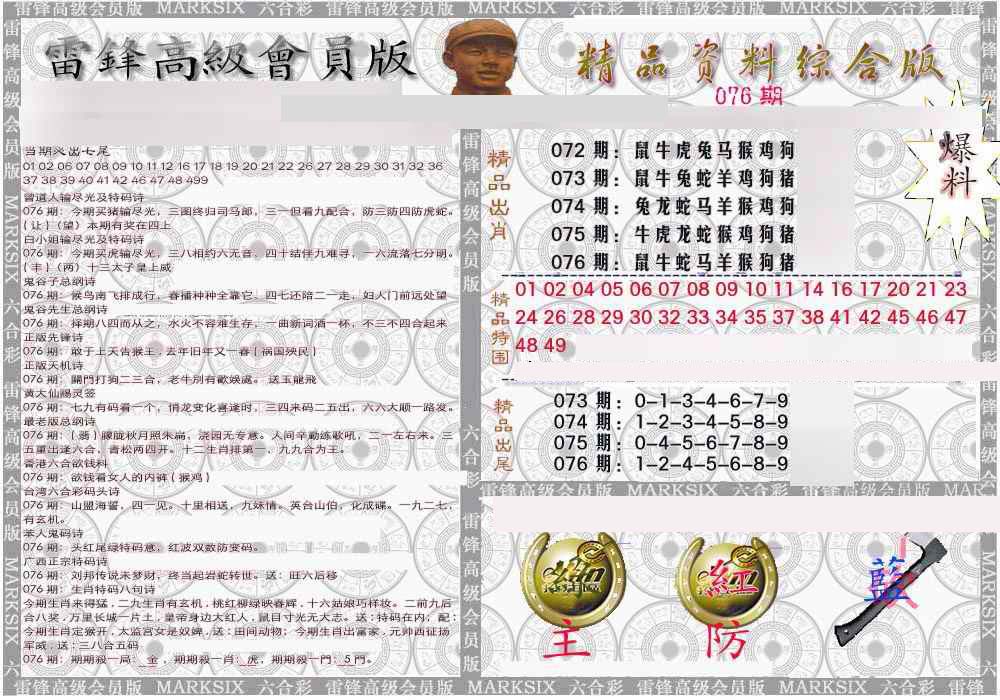 雷锋高级会员版 MARKSIX 六合彩 雷锋高级会员版 MARKSIX 六合彩 雷锋高级会员版 MARKSIX 六合彩 雷锋
雷鋒高級會員版
精品资料综合版
076 期
爆料
当期灵出七尾
01 02 06 07 08 09 10 11 12 16 17 18 19 20 21 22 26 27 28 29 30 31 32 36
37 38 39 40 41 42 46 47 48 499
曾道人输尽光及特码诗
076 期：今期买猪输尽光，三图终归司马郎，三一但看九配合，防三防四防虎蛇。
{ 让 }（望）本期有奖在四上
白小姐输尽光及特码诗
076 期：今期买虎输尽光，三八相约六无音，四十结伴九难寻，一六流落七分明。
{ 丰 }（两）十三太子皇上威
鬼谷子总纲诗
076 期：候鸟南飞排成行，春播种种全靠它，四七还陪二一走，妇人门前远处望
鬼谷先生总纲诗
076 期：择期八四而从之，水火不容难生存，一曲新词酒一杯，不三不四合起来
正版先锋诗
076 期：敢于上天告猴王，去年旧年又一春 { 祸国殃民 }
正版天机诗
076 期：關門打狗二三合，老牛別有歡娛處。 送玉龍飛
黄大仙赐灵签
076 期：七九有码看一个，悄龙变化喜逢时，三四来码二五出，六六大顺一路发。
最老版总纲诗
076 期：{ 翡 } 朦胧秋月照朱扁，浇园无专意。人间辛勤练歌吼，二一左右来。三
五重出逢六合，青松两四开。十二生肖排第一，九九合为王。
香港六合欲钱料
076 期：欲钱看女人的内裤 { 猴鸡 }
台湾六合彩码头诗
076 期：山盟海誓，四一见。十里相送，九妹情。英台山伯，化成碟。一九二七，
有玄机。
本人鬼码诗
076 期：头红尾绿特码意，红波双数防变码。
广西正宗特码诗
076 期：刘邦传说未梦财，终当起岩蛇转世。送：旺六后移
076 期：生肖特码八句诗
今期生肖来得猛，二九生肖有玄机，桃红柳绿映春辉，十六姑娘巧样妆。二前九后
合八奖，万里长城一片土，皇帝身边大红人，鼠目寸光无大志。送：特码在内；配：
今期生肖定猴开，太监宫女是奴婢，送：田间动物；今期生肖出富家，元帅西征扬
军威，送：三八合五码
076 期：期期殺一局：金，期期殺一肖：虎，期期殺一門：5 門。
精品出肖
072 期：鼠牛虎兔马猴鸡狗
073 期：鼠牛兔蛇羊鸡狗猪
074 期：兔龙蛇马羊猴鸡狗
075 期：牛虎龙蛇猴鸡狗猪
076 期：鼠牛蛇马羊猴狗猪
精品特围
01 02 04 05 06 07 08 09 10 11 14 16 17 20 21 23
24 26 28 29 30 32 33 34 35 37 38 41 42 45 46 47
48 49
精品出尾
073 期：0-1-3-4-6-7-9
074 期：1-2-3-4-5-8-9
075 期：0-4-5-6-7-8-9
076 期：1-2-4-5-6-8-9
雷锋高级会员版 MARKSIX 六合彩 雷锋高级会员版 MARK
紅
藍
主
防
雷锋高级会员版 MARKSIX 六合彩 雷锋高级会员版 MARKSIX 六合彩 雷锋高级会员版 MARKSIX 六合彩 雷锋